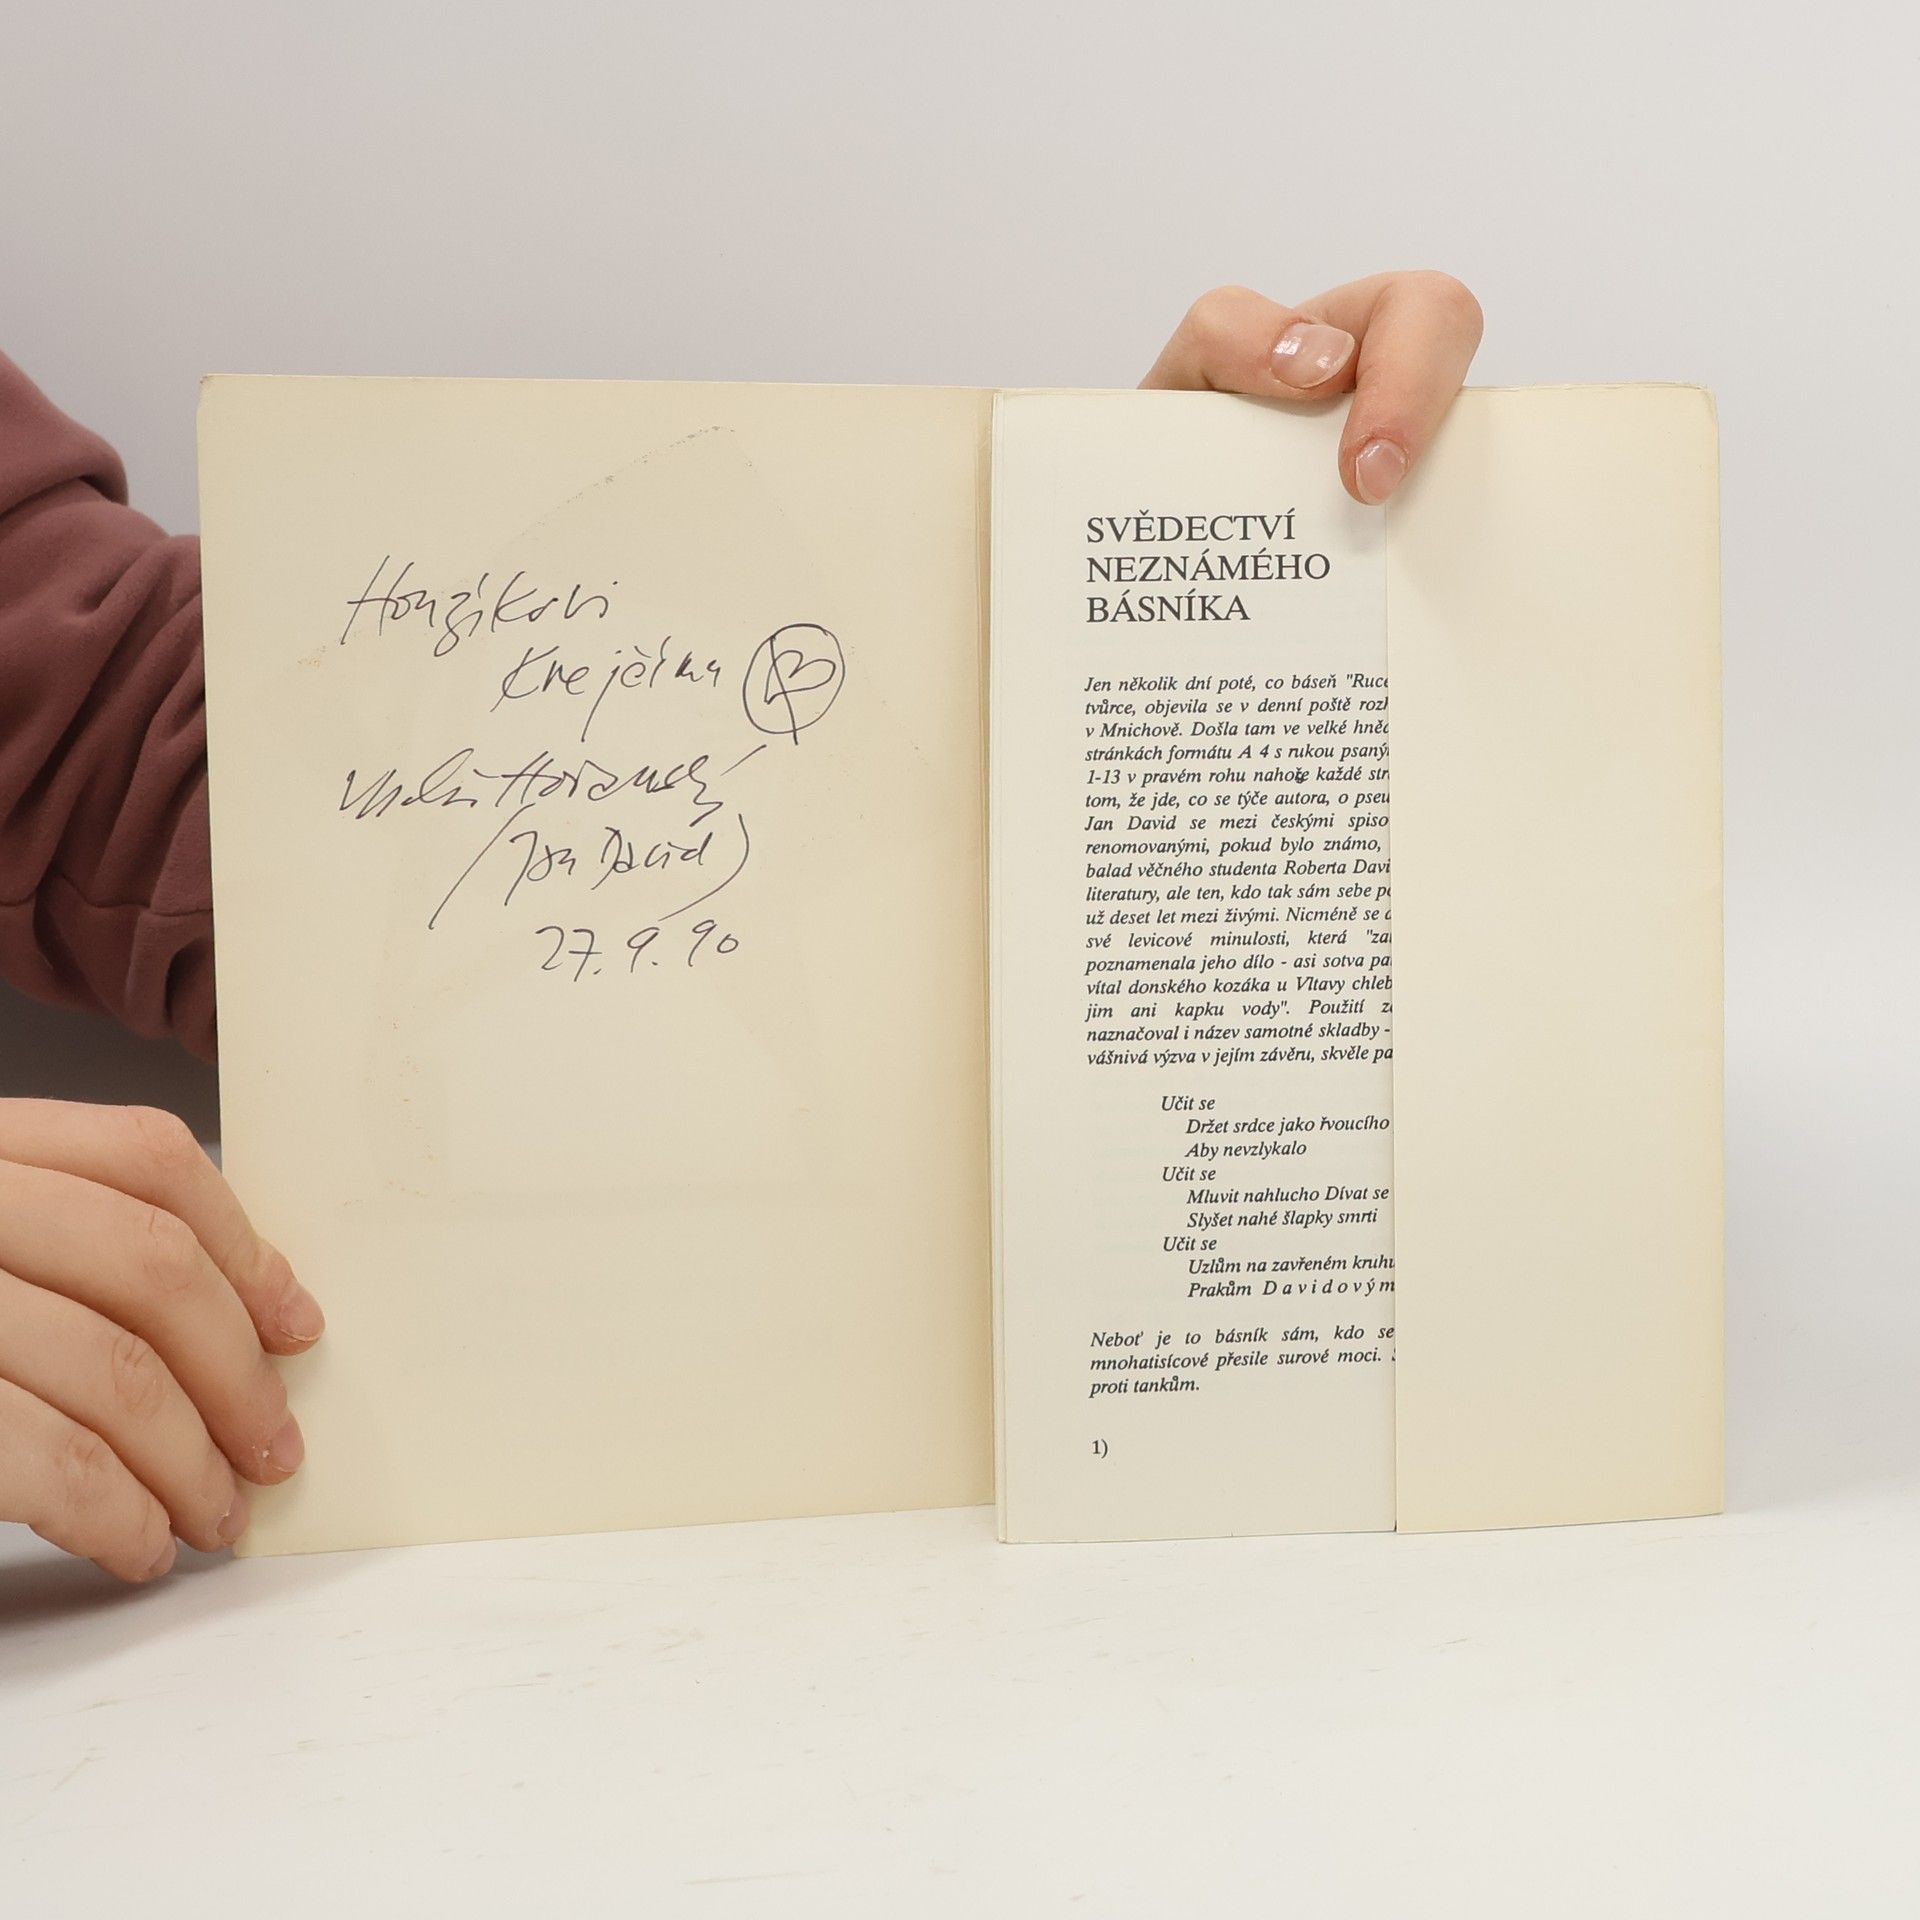 Honzíkovi
Krejčímu
Miloš Hořanský
(Jan David)
27. 9. 90
SVĚDECTVÍ
NEZNÁMÉHO
BÁSNÍKA
Jen několik dní poté, co báseň "Ruce
tvůrce, objevila se v denní poště
v Mnichově. Došla tam ve velké
stránkách formátu A 4 s rukou
1-13 v pravém rohu nahoře každé
tom, že jde, co se týče autora, o
Jan David se mezi českými
renomovanými, pokud bylo známo,
balad věčného studenta Roberta
literatury, ale ten, kdo tak sám sebe
už deset let mezi živými. Nicméně se
své levicové minulosti, která
poznamenala jeho dílo - asi sotva
vítal donského kozáka u Vltavy
jim ani kapku vody". Použití
naznačoval i název samotné skladby -
vášnivá výzva v jejím závěru, skvěle
Učit se
Držet srdce jako řvoucího
Aby nevzlykalo
Učit se
Mluvit nahlucho Dívat se
Slyšet nahé šlapky smrti
Učit se
Uzlům na zavřeném kruhu
Prakům D a v i d o v ý m
Neboť je to básník sám, kdo se
mnohatisícové přesile surové moci.
proti tankům.
1)